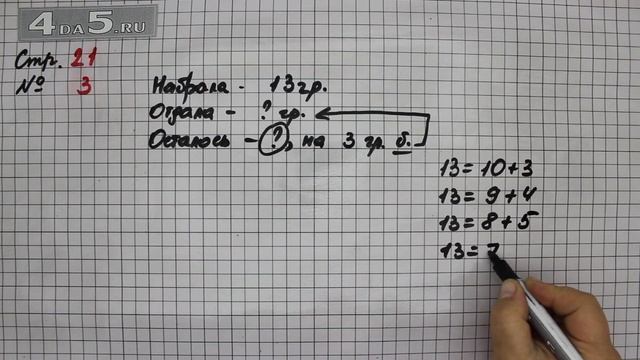 4DA5.RU
Стр. 21
№ 3
Набрала - 13 гр.
Отдала - ? гр.
Осталось - ?, на 3 гр. б.
13 = 10 + 3
13 = 9 + 4
13 = 8 + 5
13 = 7